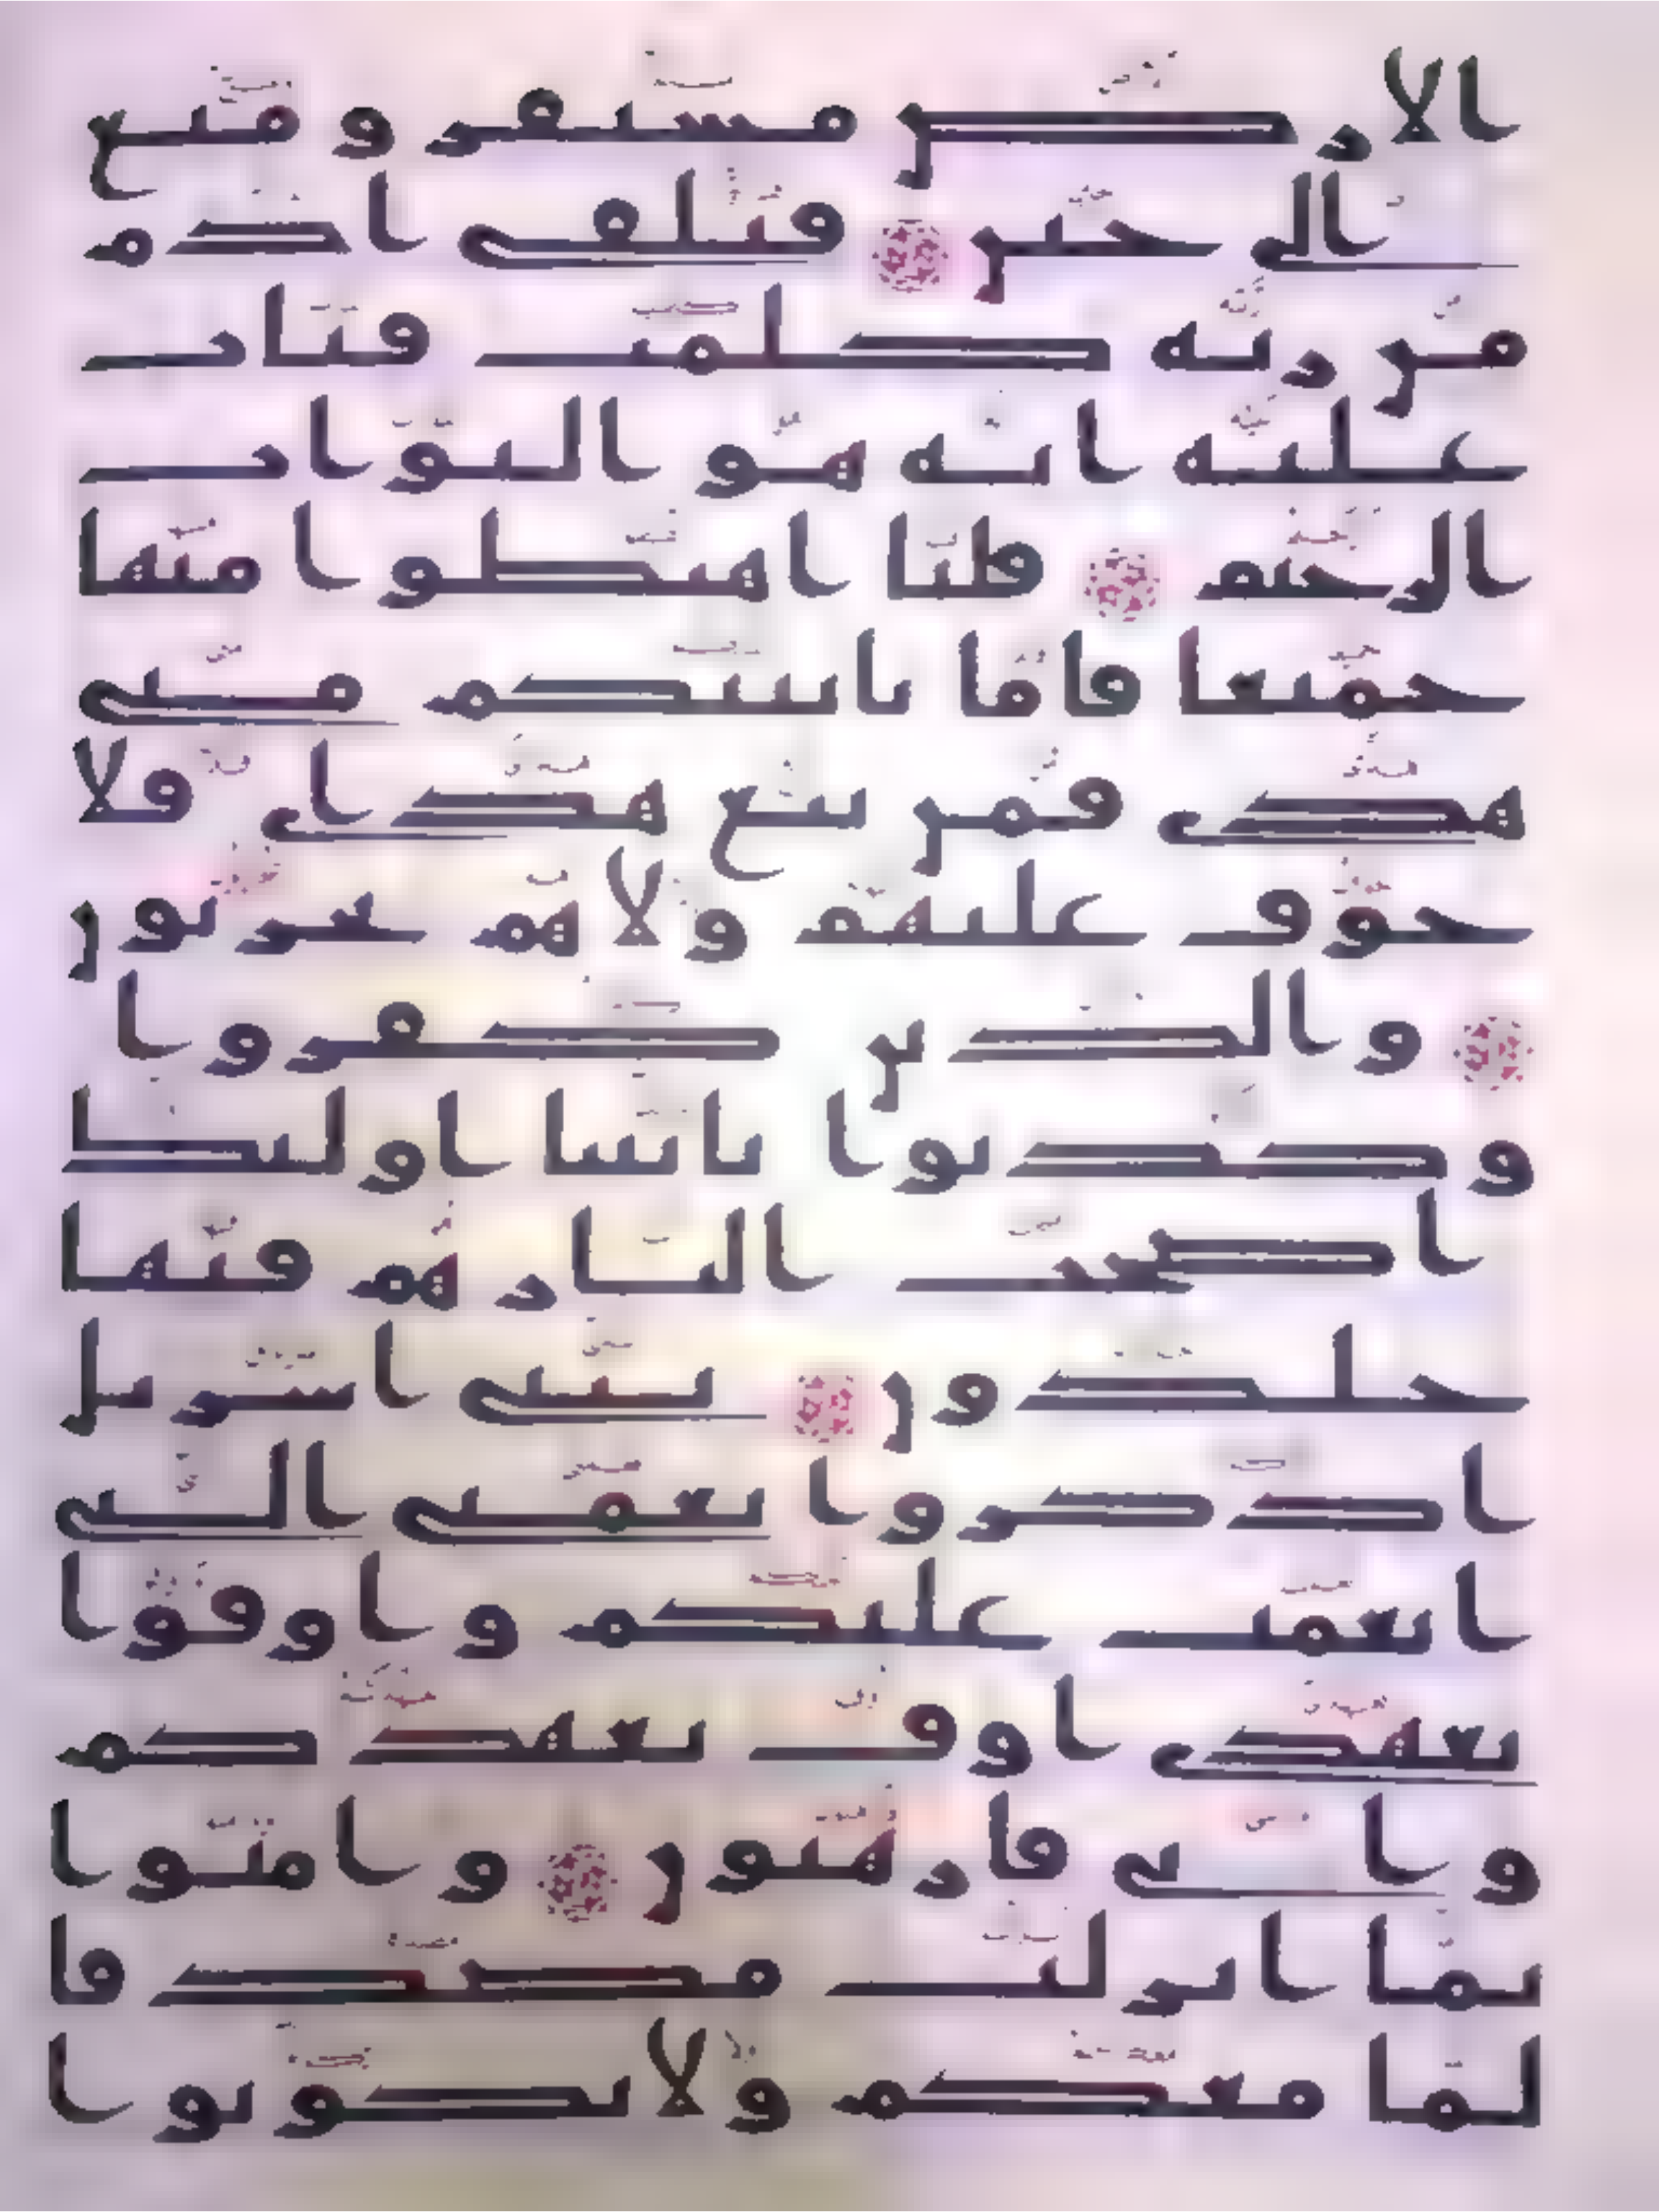 الارض مستقر ومتع
الى حين فتلقى ادم
من ربه كلمت فتاب
عليه انه هو التواب
الرحيم قلنا اهبطوا منها
جميعا فاما ياتينكم منى
هدى فمن تبع هداى فلا
خوف عليهم ولا هم يحزنون
والذين كفروا
وكذبوا بايتنا اوليك
اصحب النار هم فيها
خلدون يبنى اسريل
اذكروا نعمتى التى
انعمت عليكم واوفوا
بعهدى اوف بعهدكم
وايى فارهبون وامنوا
بما انزلت مصدقا
لما معكم ولا تكونوا